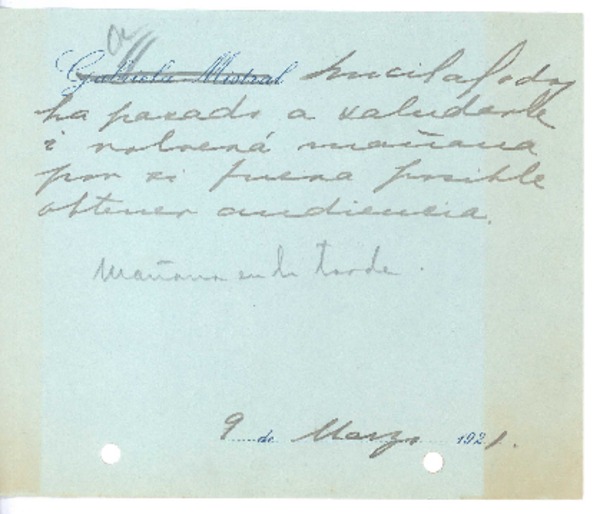 Gabriela Mistral Lucila Godoy
ha pasado a saludarle
i volverá mañana
por si fuera posible
obtener audiencia.
Mañana en la tarde.
9 de Marzo 1921.